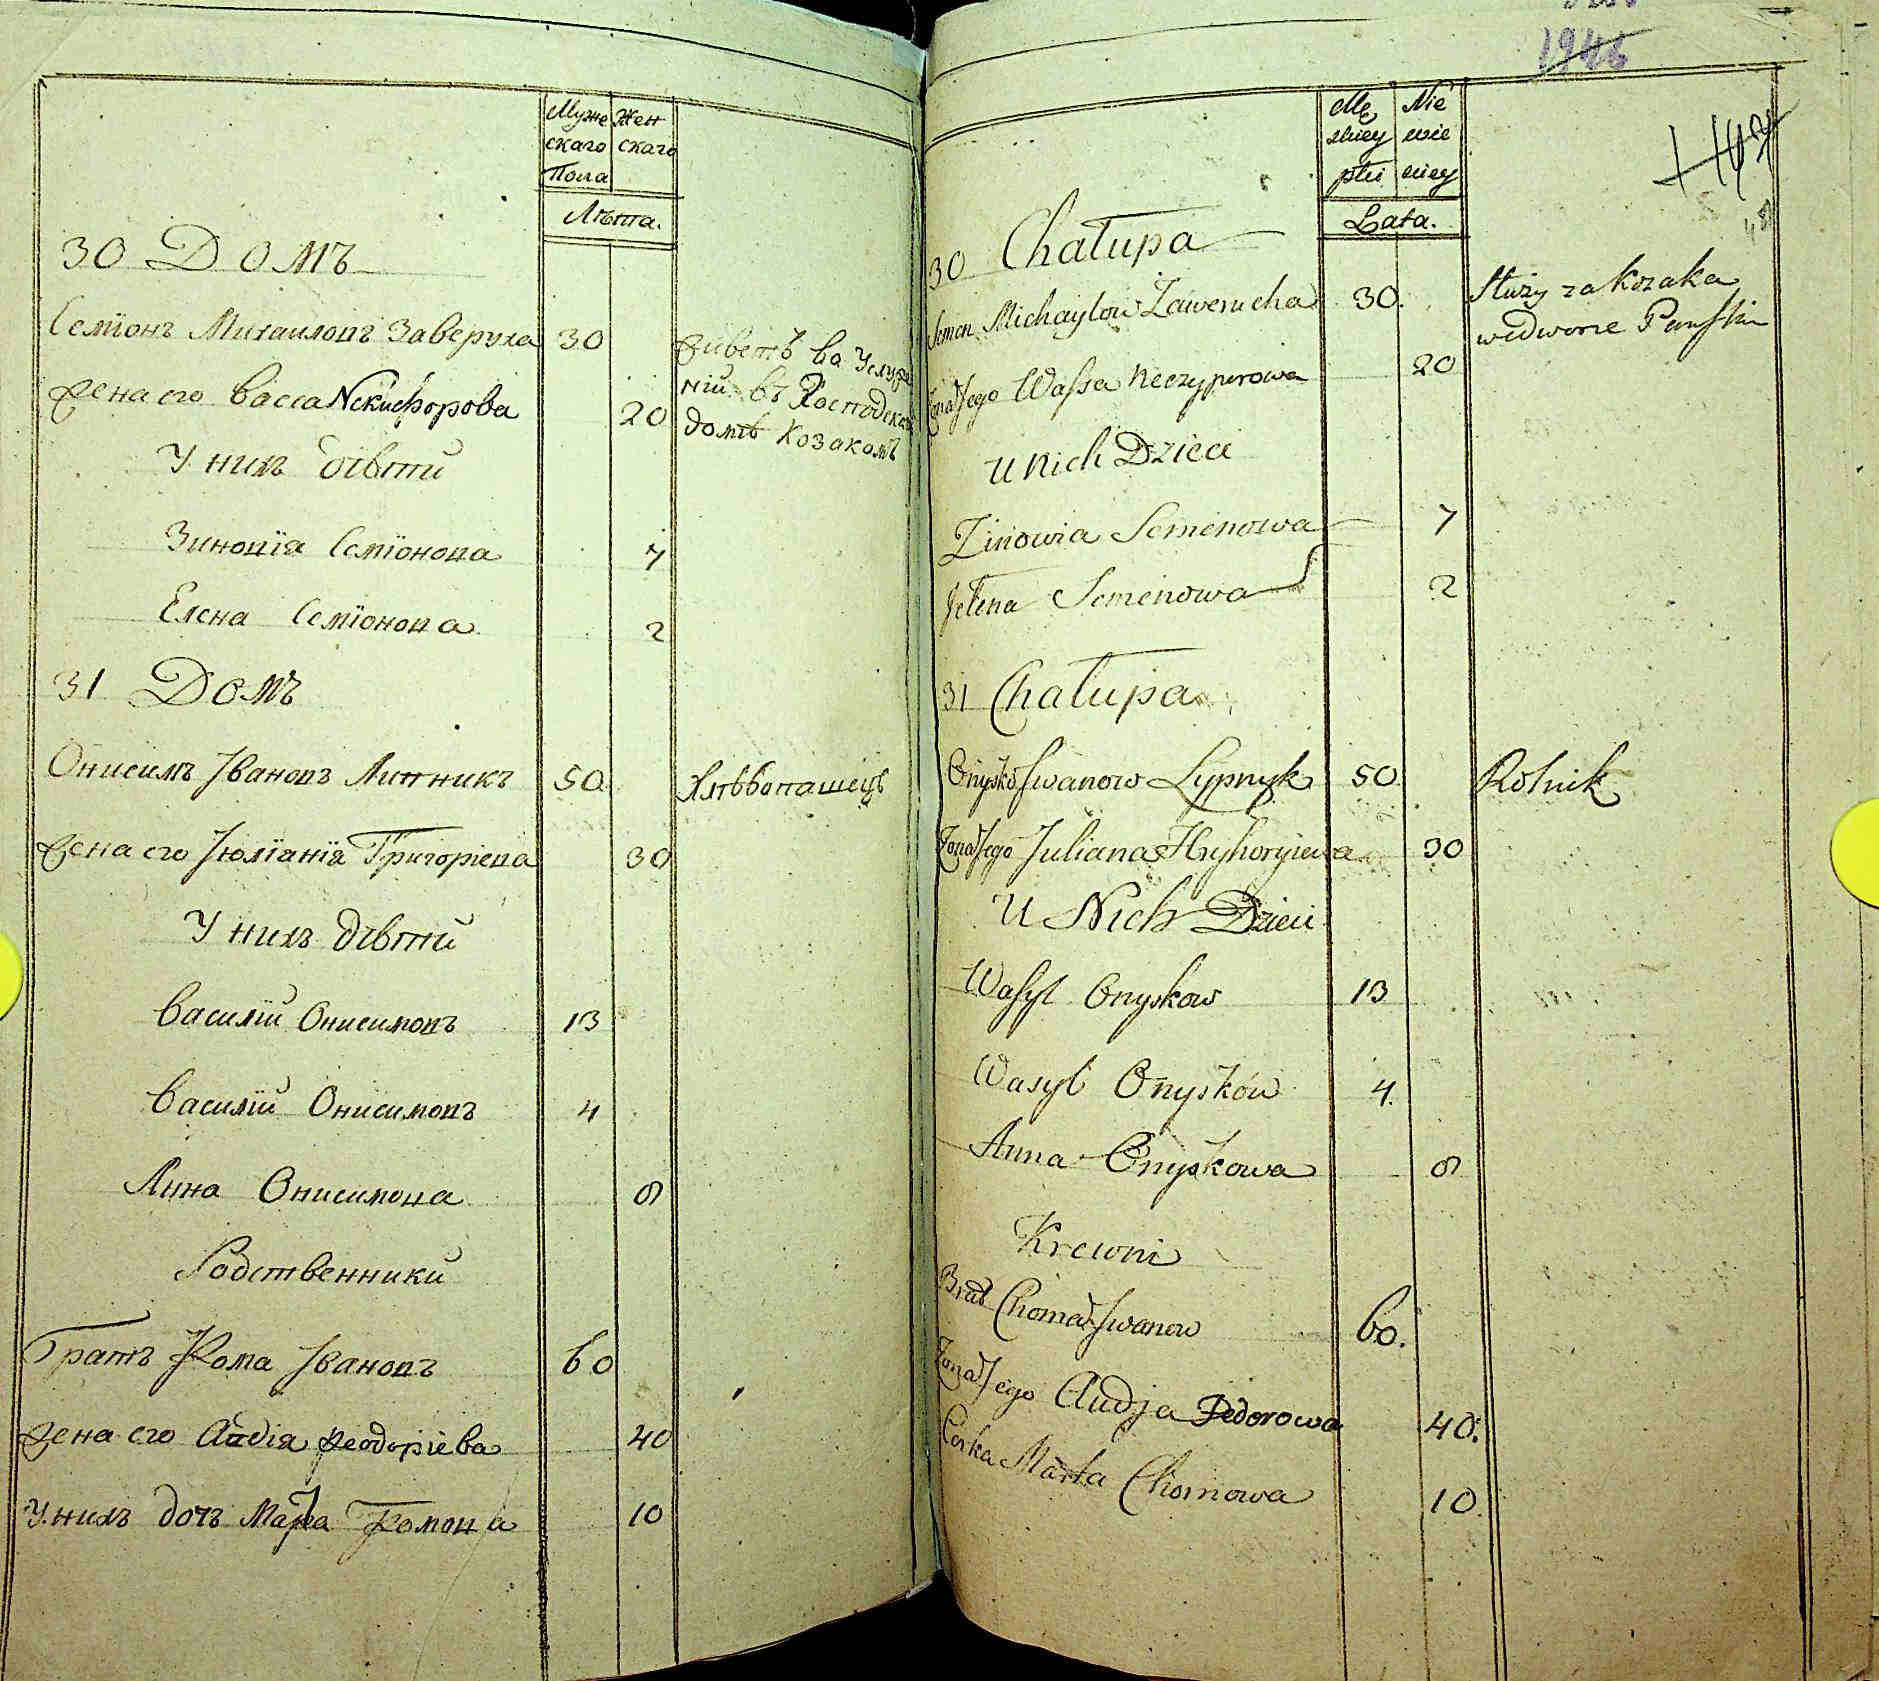 Муже Жен
скаго скаго
Пола
Лѣта.
30 Домъ
Семіонъ Михаиловъ Заверуха 30
Жена его Васса Никифорова 20
живетъ во Услуже
ніи въ Господскомъ
домѣ козакомъ
У нихъ дѣти
Зиновія Семіонова 7
Елена Семіонова 2
31 Домъ
Онисимъ Ивановъ Липникъ 50 Хлѣбопашецъ
Жена его Іюліанія Григоріева 30
У нихъ дѣти
Василій Онисимовъ 13
Василій Онисимовъ 4
Анна Онисимова 8
Родственники
Братъ Хома Ивановъ 60
Жена его Авдія Феодоріева 40
У нихъ дочь Марѳа Хомова 10
1946
Mę Nie
skiey wie
płci ściey
Lata.
30 Chałupa
Semen Michayłow Zawerucha 30.
Służy za kozaka
we dworze Pańskim
Żona Jego Wassa Neczyperowa 20
U Nich Dzieci
Zinowia Semenowa 7
Jełena Semenowa 2
31 Chałupa
Onyśko Iwanow Lypnyk 50 Rolnik
Żona Jego Juliana Hryhoryiewa 30
U Nich Dzieci
Wasyl Onyskow 13
Wasyl Onyśków 4.
Anna Onyskowa 8
Krewni
Brat Choma Iwanow 60.
Żona Jego Audja Fedorowa 40.
Corka Marta Chomowa 10.